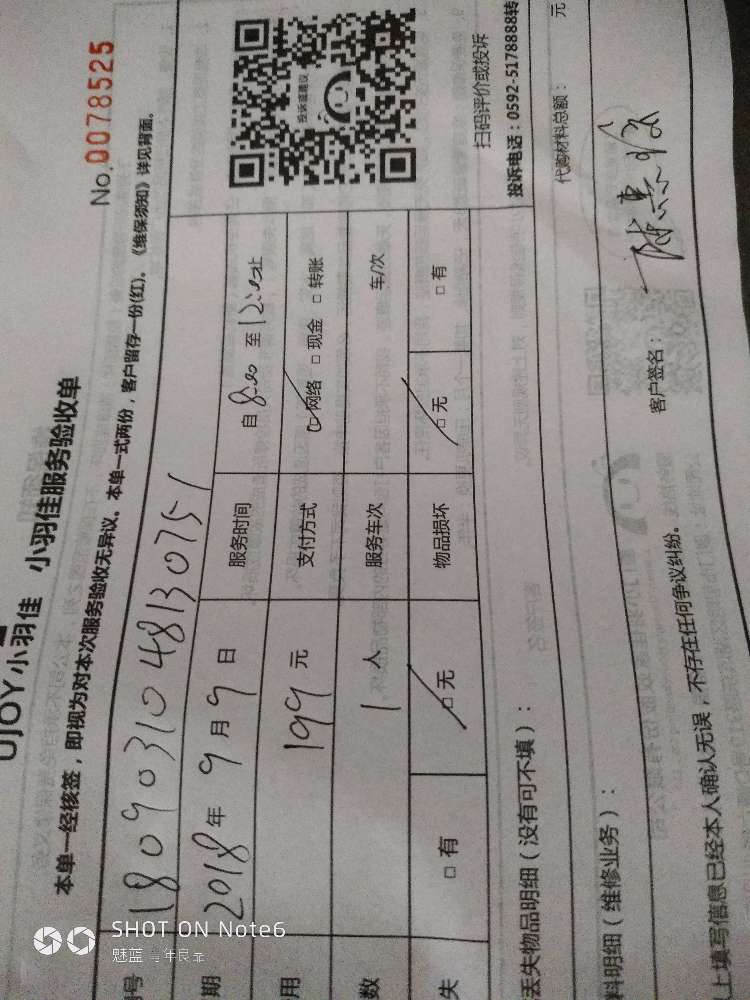 No.0078525
UJOY小羽佳 小羽佳服务验收单
本单一经核签，即视为对本次服务验收无异议。本单一式两份，客户留存一份(红)。《维保须知》详见背面。
号 180903104813075 1
期 2018年9月9日 服务时间 自8:00至12:00止
用 199元 支付方式 □网络 □现金 □转账
数 1人 服务车次 车/次
失 □有 □无 物品损坏 □无 □有
投诉或建议
扫码评价或投诉
投诉电话：0592-5178888转
丢失物品明细（没有可不填）：
代购材料总额： 元
料明细（维修业务）：
客户签名：
上填写信息已经本人确认无误，不存在任何争议纠纷。
SHOT ON Note6
魅蓝